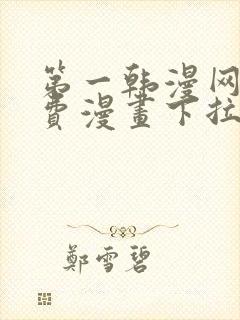 第一韩漫网
费漫畫下拉
鄭雪碧